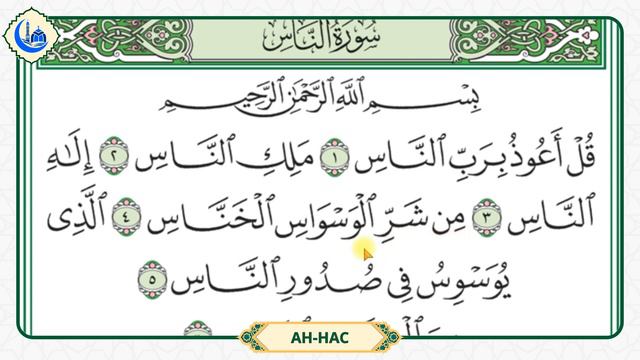 سُورَةُ النَّاسِ
بِسْمِ ٱللَّهِ ٱلرَّحْمَٰنِ ٱلرَّحِيمِ
قُلْ أَعُوذُ بِرَبِّ ٱلنَّاسِ ١ مَلِكِ ٱلنَّاسِ ٢ إِلَٰهِ
ٱلنَّاسِ ٣ مِن شَرِّ ٱلْوَسْوَاسِ ٱلْخَنَّاسِ ٤ ٱلَّذِى
يُوَسْوِسُ فِى صُدُورِ ٱلنَّاسِ ٥
АН-НАС